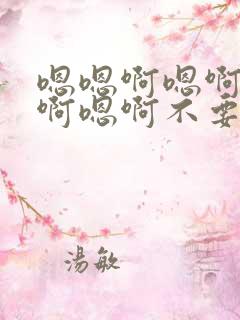 嗯嗯啊嗯啊
啊嗯啊不要
湯敏